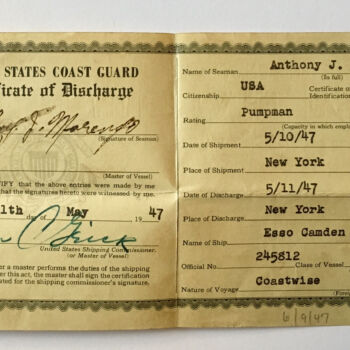 STATES COAST GUARD
icate of Discharge
(Signature of Seaman)
(Master of Vessel)
TIFY that the above entries were made by me
that the signatures hereto were witnessed by me.
11th day of May 47
United States Shipping Commissioner.
(or Master of Vessel)
er a master performs the duties of the shipping
er this act, the master shall sign the certification
ated for the shipping commissioner's signature.
Name of Seaman Anthony J.
(In full)
Citizenship USA Certificate of
Identification
Rating Pumpman
(Capacity in which employ
Date of Shipment 5/10/47
Place of Shipment New York
Date of Discharge 5/11/47
Place of Discharge New York
Name of Ship Esso Camden
Official No. 245812 Class of Vessel
Nature of Voyage Coastwise
(Forei
6/9/47